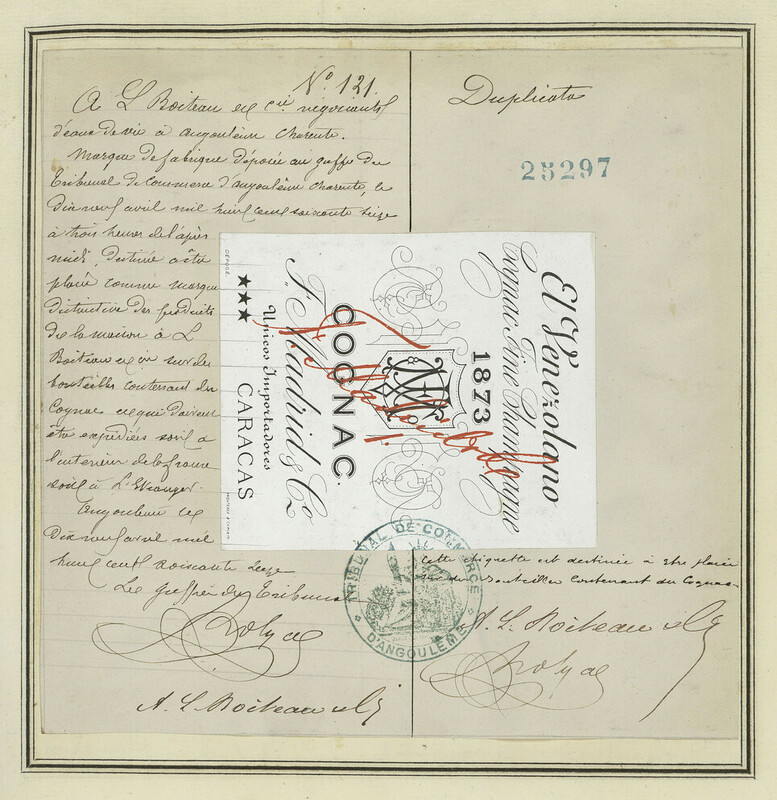 Nº 121.
A L Boiteau et Cie négociants
d'eaux de vie à Angoulême Charente.
Marque de fabrique déposée au greffe du
Tribunal de Commerce d'angoulême charente, le
dix neuf avril mil huit cent soixante seize
à trois heures de l'après
midi, destinée à être
placée comme marque
distinctive des produits
de la maison A L
Boiteau et Cie sur des
bouteilles contenant du
Cognac et qui doivent
être expédiées soit à
l'intérieur de la france
soit à L'Etranger.
Angoulême le
dix neuf avril mil
huit cent soixante seize
Le greffier du Tribunal
A. L Boiteau & Cie
Duplicata
25297
El Venezolano
Cognac Fine Champagne
1873
COGNAC.
F. Madrid & Co
Unicos Importadores
CARACAS
DÉPOSÉ.
TRIBUNAL DE COMMERCE
D'ANGOULÊME
Cette étiquette est destinée à être placée
sur des bouteilles contenant du Cognac
A. L. Boiteau & Cie